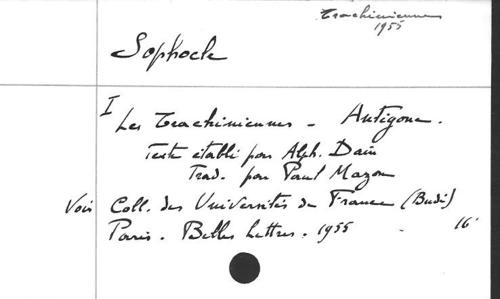 Trachiniennes
1955
Sophocle
I
Les Trachiniennes - Antigone.
Texte établi par Alph. Dain
Trad. par Paul Mazon
Voir Coll. des Universités de France (Budé)
Paris. Belles Lettres. 1955 - 16°